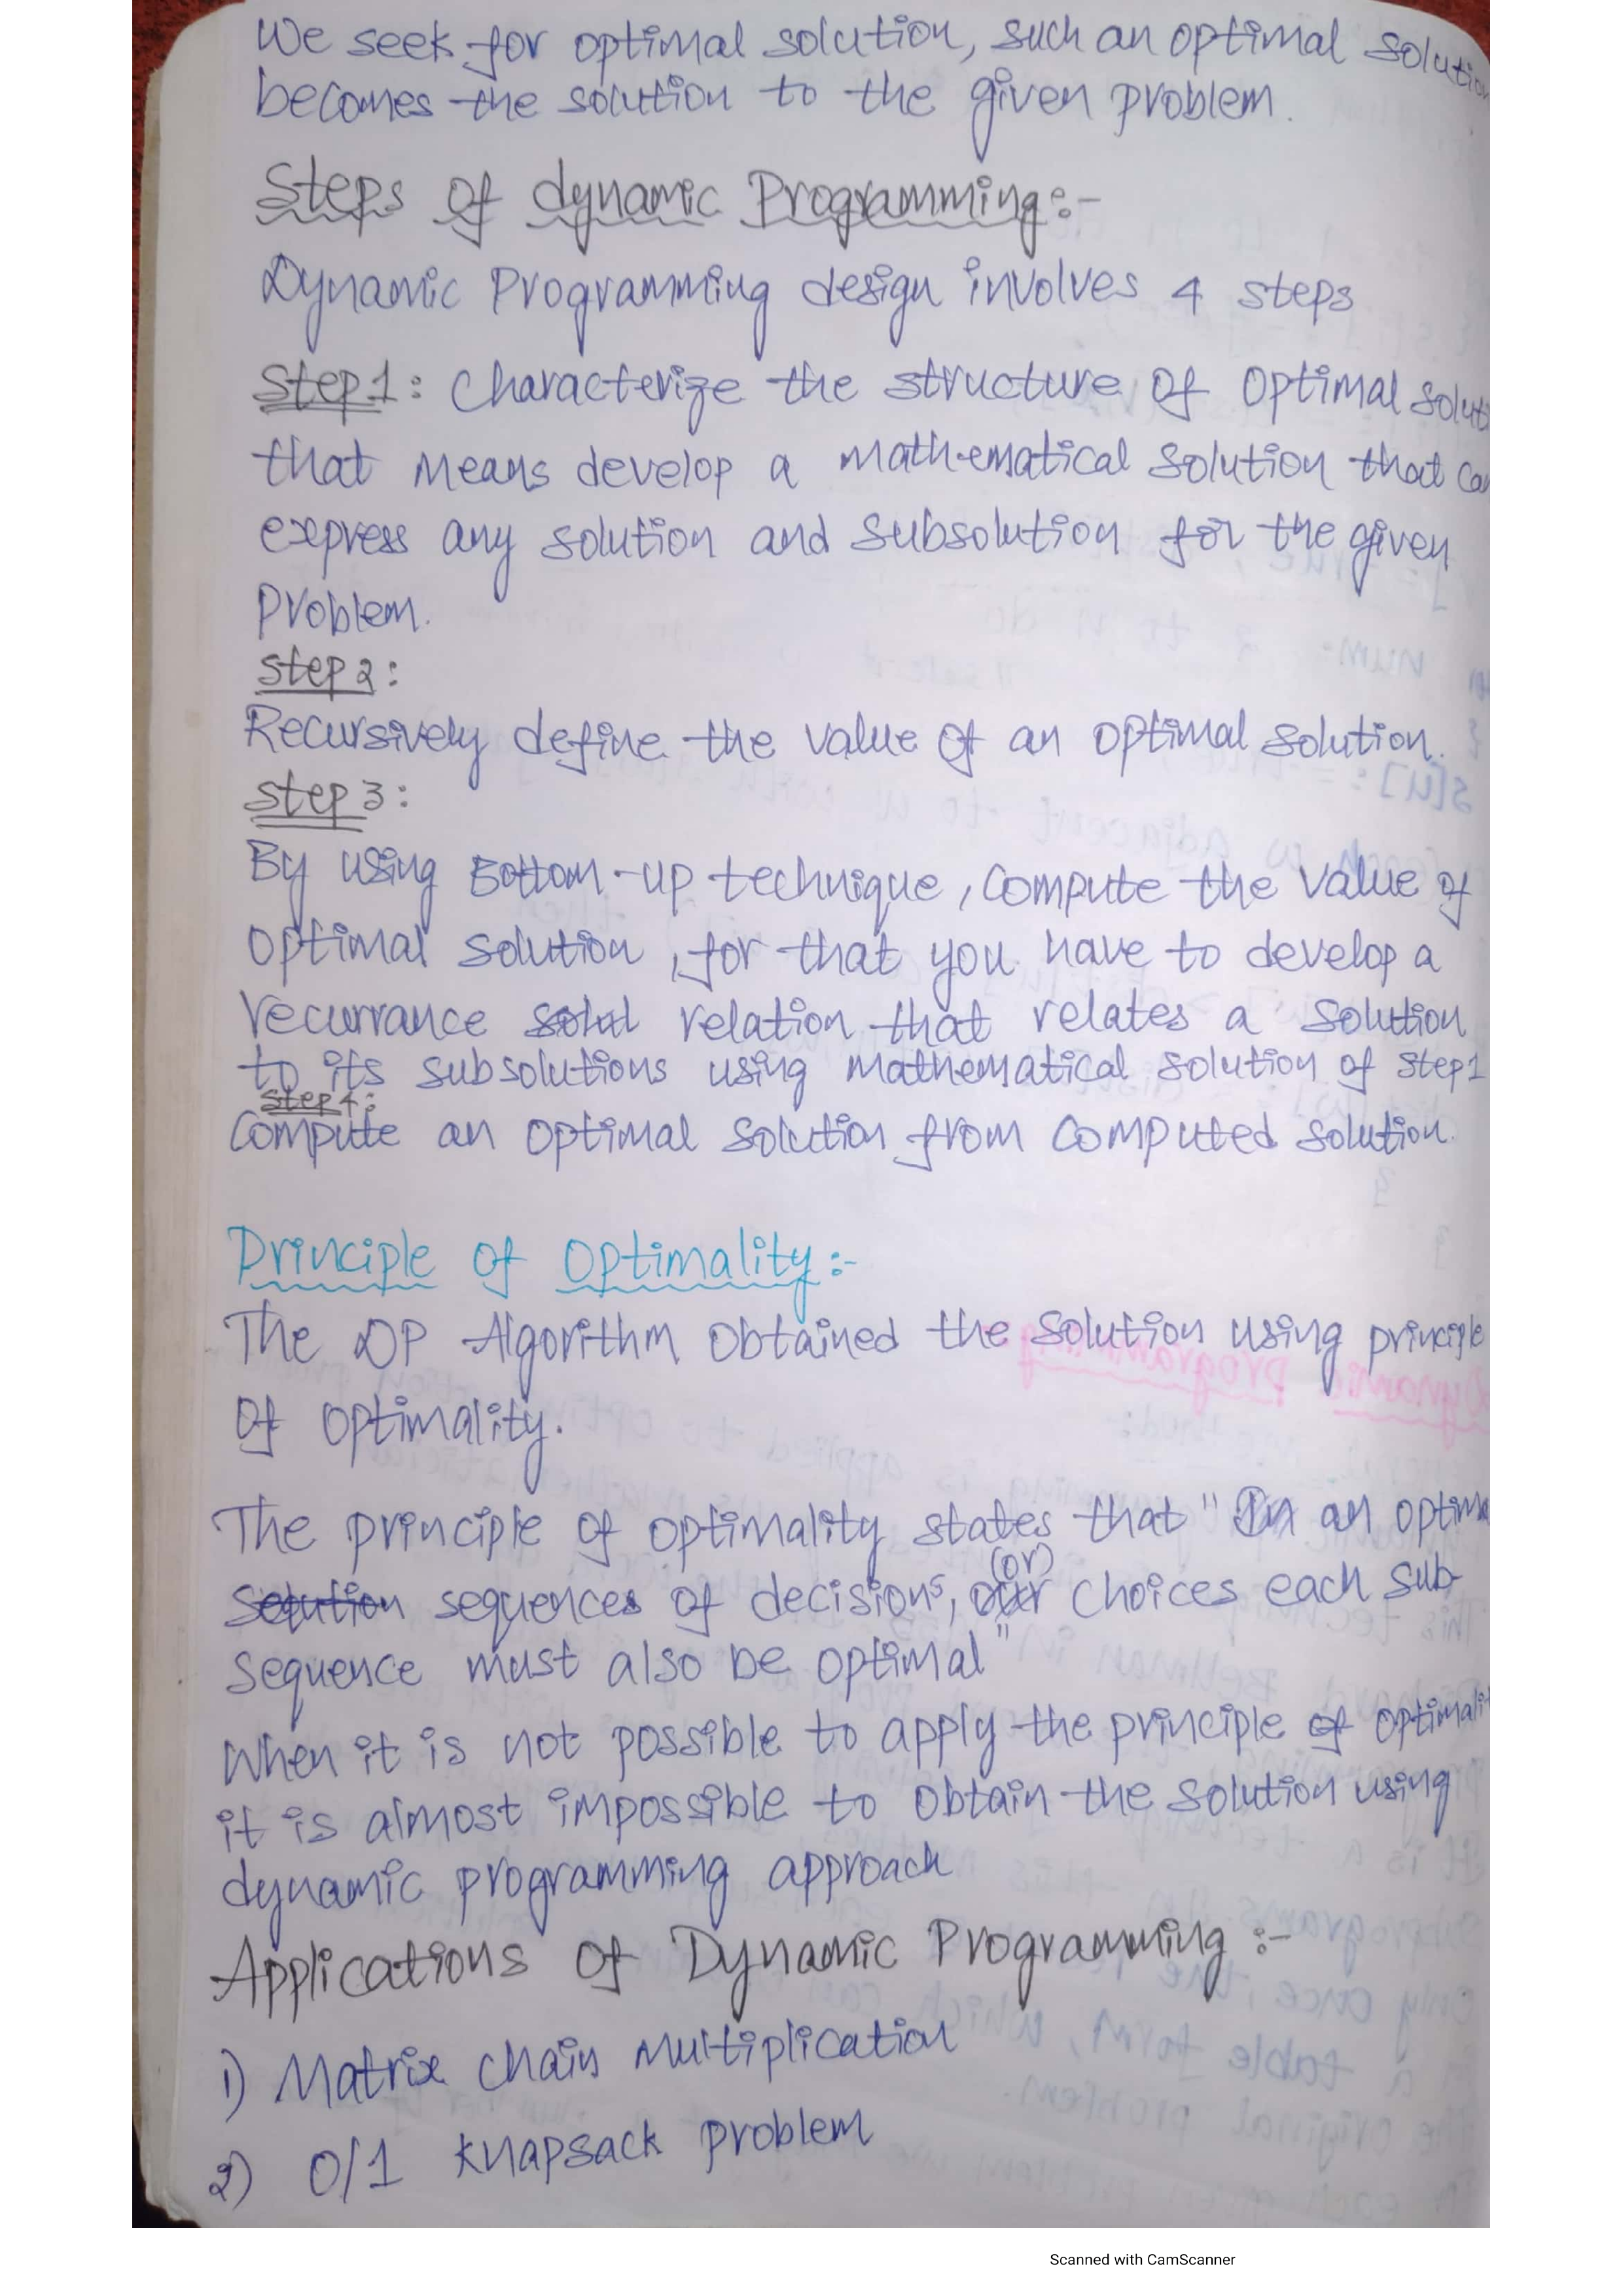 We seek for optimal solution, such an optimal solution
becomes the solution to the given problem.
Steps of dynamic Programming:-
Dynamic Programming design involves 4 steps
Step1: Characterize the structure of Optimal Solut
that means develop a mathematical solution that can
express any solution and subsolution for the given
Problem.
Step 2:
Recursively define the value of an optimal solution.
Step 3:
By using Bottom-up technique, Compute the value of
optimal solution, for that you have to develop a
recurrance relation that relates a solution
to its subsolutions using mathematical solution of step1
Step 4:
Compute an optimal solution from computed solution.
Principle of Optimality:-
The DP Algorithm obtained the solution using principle
of optimality.
The principle of optimality states that "In an optima
sequences of decisions, (or) choices each sub-
sequence must also be optimal"
When it is not possible to apply the principle of optimalit
it is almost impossible to obtain the solution using
dynamic programming approach
Applications of Dynamic Programming :-
1) Matrix chain Multiplication
2) 0/1 knapsack problem
Scanned with CamScanner